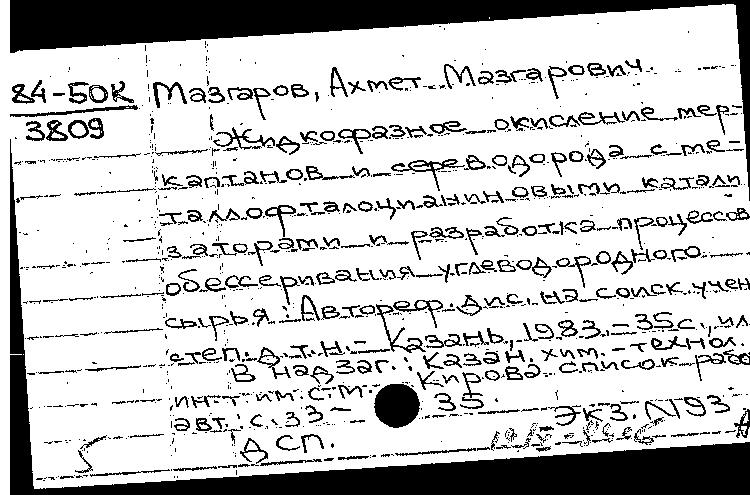 84-50К Мазгаров, Ахмет Мазгарович.
3809 Жидкофазное окисление мер-
каптанов и сереводорода с ме-
таллофталоцианиновыми катали
заторами и разработка процессов
обессеривания углеводородного
сырья : Автореф. дис. на соиск. учен
степ. д.т.н. - Казань, 1983. - 35с., ил
В надзаг.: Казан. хим. - технол.
ин-т им. С.М. Кирова. Список рабо
авт.: с. 33 - 35.
Экз. N193
ДСП.